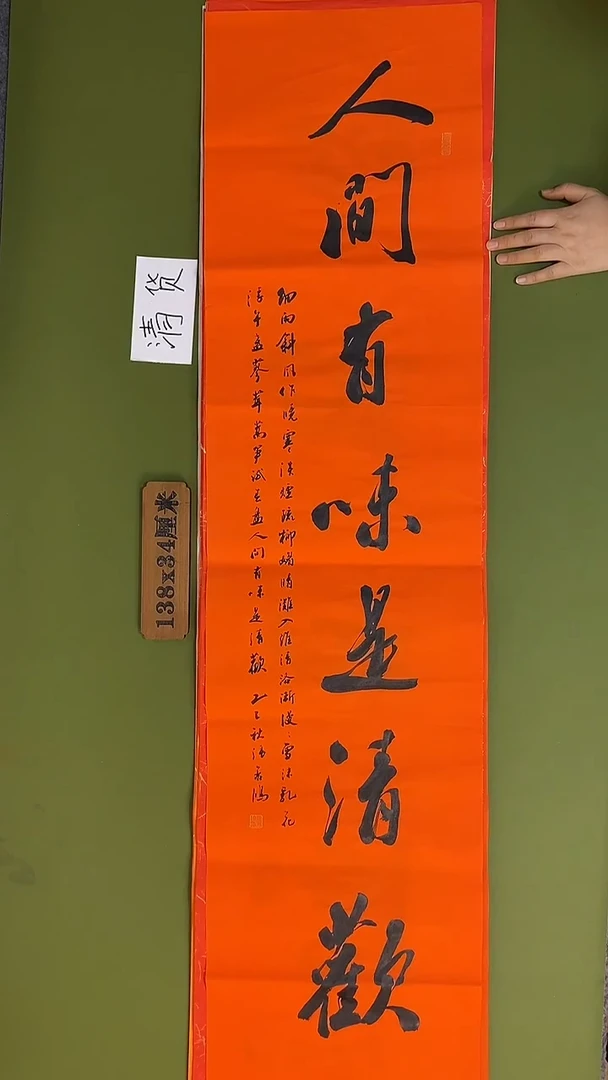 人間有味是清歡
細雨斜風作曉寒淡煙疏柳媚晴灘入淮清洛漸漫〻雪沫乳花
浮午盞蓼茸蒿筍試春盤人間有味是清歡 乙巳秋
清货
138x34厘米